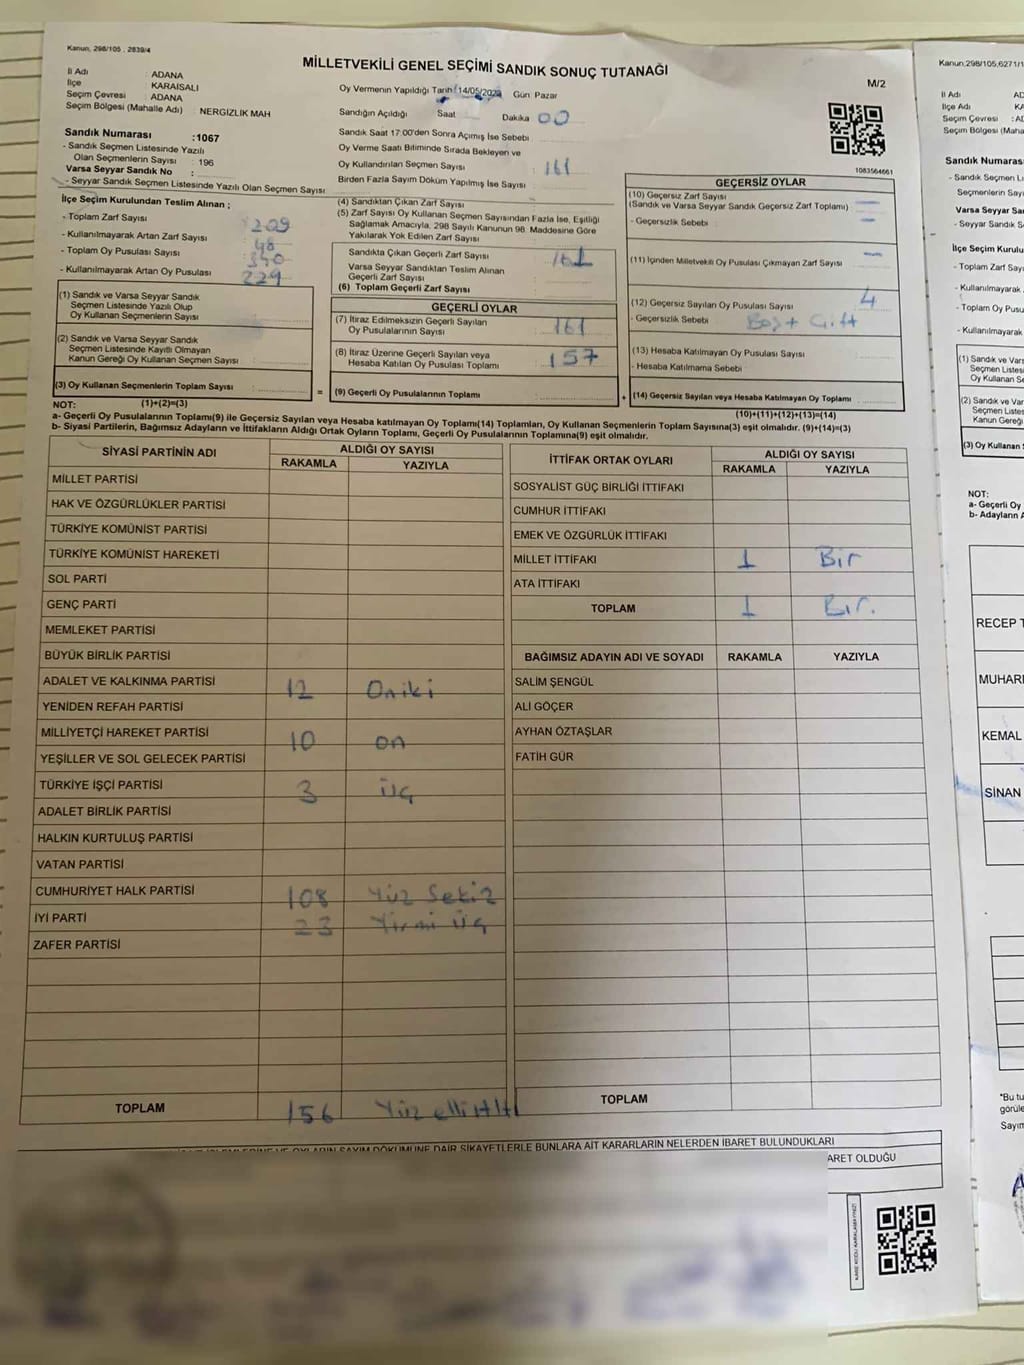 Kanun, 298/105 , 2839/4
MİLLETVEKİLİ GENEL SEÇİMİ SANDIK SONUÇ TUTANAĞI
M/2
İli Adı : ADANA
İlçe : KARAİSALI
Seçim Çevresi : ADANA
Seçim Bölgesi (Mahalle Adı) : NERGİZLİK MAH
Sandık Numarası :1067
- Sandık Seçmen Listesinde Yazılı
Olan Seçmenlerin Sayısı : 196
Varsa Seyyar Sandık No :
- Seyyar Sandık Seçmen Listesinde Yazılı Olan Seçmen Sayısı
Oy Vermenin Yapıldığı Tarih 14/05/2023 Gün Pazar
Sandığın Açıldığı Saat Dakika 00
Sandık Saat 17:00'den Sonra Açımış İse Sebebi
Oy Verme Saati Bitiminde Sırada Bekleyen ve
Oy Kullandırılan Seçmen Sayısı 161
Birden Fazla Sayım Döküm Yapılmış İse Sayısı
1083564661
İlçe Seçim Kurulundan Teslim Alınan ;
- Toplam Zarf Sayısı 209
- Kullanılmayarak Artan Zarf Sayısı 48
- Toplam Oy Pusulası Sayısı
- Kullanılmayarak Artan Oy Pusulası 229
(1) Sandık ve Varsa Seyyar Sandık
Seçmen Listesinde Yazılı Olup
Oy Kullanan Seçmenlerin Sayısı
(2) Sandık ve Varsa Seyyar Sandık
Seçmen Listesinde Kayıtlı Olmayan
Kanun Gereği Oy Kullanan Seçmen Sayısı
(3) Oy Kullanan Seçmenlerin Toplam Sayısı
(1)+(2)=(3)
(4) Sandıktan Çıkan Zarf Sayısı
(5) Zarf Sayısı Oy Kullanan Seçmen Sayısından Fazla İse, Eşitliği
Sağlamak Amacıyla, 298 Sayılı Kanunun 98. Maddesine Göre
Yakılarak Yok Edilen Zarf Sayısı
Sandıkta Çıkan Geçerli Zarf Sayısı 161
Varsa Seyyar Sandıktan Teslim Alınan
Geçerli Zarf Sayısı
(6) Toplam Geçerli Zarf Sayısı
GEÇERLİ OYLAR
(7) İtiraz Edilmeksizin Geçerli Sayılan
Oy Pusulalarının Sayısı 161
(8) İtiraz Üzerine Geçerli Sayılan veya
Hesaba Katılan Oy Pusulası Toplamı 157
= (9) Geçerli Oy Pusulalarının Toplamı
GEÇERSİZ OYLAR
(10) Geçersiz Zarf Sayısı
(Sandık ve Varsa Seyyar Sandık Geçersiz Zarf Toplamı)
- Geçersizlik Sebebi
(11) İçinden Milletvekili Oy Pusulası Çıkmayan Zarf Sayısı
(12) Geçersiz Sayılan Oy Pusulası Sayısı 4
- Geçersizlik Sebebi Boş + Çift
(13) Hesaba Katılmayan Oy Pusulası Sayısı
- Hesaba Katılmama Sebebi
+ (14) Geçersiz Sayılan veya Hesaba Katılmayan Oy Toplamı
(10)+(11)+(12)+(13)=(14)
NOT:
a- Geçerli Oy Pusulalarının Toplamı(9) ile Geçersiz Sayılan veya Hesaba katılmayan Oy Toplamı(14) Toplamları, Oy Kullanan Seçmenlerin Toplam Sayısına(3) eşit olmalıdır. (9)+(14)=(3)
b- Siyasi Partilerin, Bağımsız Adayların ve İttifakların Aldığı Ortak Oyların Toplamı, Geçerli Oy Pusulalarının Toplamına(9) eşit olmalıdır.
SİYASİ PARTİNİN ADI ALDIĞI OY SAYISI
RAKAMLA YAZIYLA
MİLLET PARTİSİ
HAK VE ÖZGÜRLÜKLER PARTİSİ
TÜRKİYE KOMÜNİST PARTİSİ
TÜRKİYE KOMÜNİST HAREKETİ
SOL PARTİ
GENÇ PARTİ
MEMLEKET PARTİSİ
BÜYÜK BİRLİK PARTİSİ
ADALET VE KALKINMA PARTİSİ 12 Oniki
YENİDEN REFAH PARTİSİ
MİLLİYETÇİ HAREKET PARTİSİ 10 on
YEŞİLLER VE SOL GELECEK PARTİSİ
TÜRKİYE İŞÇİ PARTİSİ 3 üç
ADALET BİRLİK PARTİSİ
HALKIN KURTULUŞ PARTİSİ
VATAN PARTİSİ
CUMHURİYET HALK PARTİSİ 108 Yüz Sekiz
İYİ PARTİ 23 Yirmi üç
ZAFER PARTİSİ
TOPLAM 156 Yüz elli Altı
İTTİFAK ORTAK OYLARI ALDIĞI OY SAYISI
RAKAMLA YAZIYLA
SOSYALİST GÜÇ BİRLİĞİ İTTİFAKI
CUMHUR İTTİFAKI
EMEK VE ÖZGÜRLÜK İTTİFAKI
MİLLET İTTİFAKI 1 Bir
ATA İTTİFAKI
TOPLAM 1 Bir.
BAĞIMSIZ ADAYIN ADI VE SOYADI RAKAMLA YAZIYLA
SALİM ŞENGÜL
ALİ GÖÇER
AYHAN ÖZTAŞLAR
FATİH GÜR
TOPLAM
OYLARIN SAYIM DÖKÜMÜNE DAİR ŞİKAYETLERLE BUNLARA AİT KARARLARIN NELERDEN İBARET BULUNDUKLARI
ARET OLDUĞU
Kanun,298/105,6271/1
İli Adı : AD
İlçe Adı : KA
Seçim Çevresi : AD
Seçim Bölgesi (Maha
Sandık Numaras
- Sandık Seçmen Li
Seçmenlerin Sayısı
Varsa Seyyar San
- Seyyar Sandık S
İlçe Seçim Kurulu
- Toplam Zarf Sayısı
- Kullanılmayarak
- Toplam Oy Pusu
- Kullanılmayarak
(1) Sandık ve Vars
Seçmen Listesi
Oy Kullanan Se
(2) Sandık ve Vars
Seçmen Listes
Kanun Gereği
(3) Oy Kullanan S
NOT:
a- Geçerli Oy
b- Adayların A
RECEP T
MUHARR
KEMAL
SİNAN
*Bu tu
görüle
Sayım